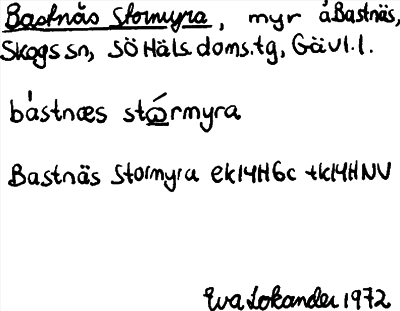 Bastnäs Stormyra, myr å Bastnäs,
Skogs sn, Sö Häls. doms. tg, Gävl. l.
bástnæs stώrmyra
Bastnäs Stormyra ek14H6c tk14HNV
Eva Lokander 1972